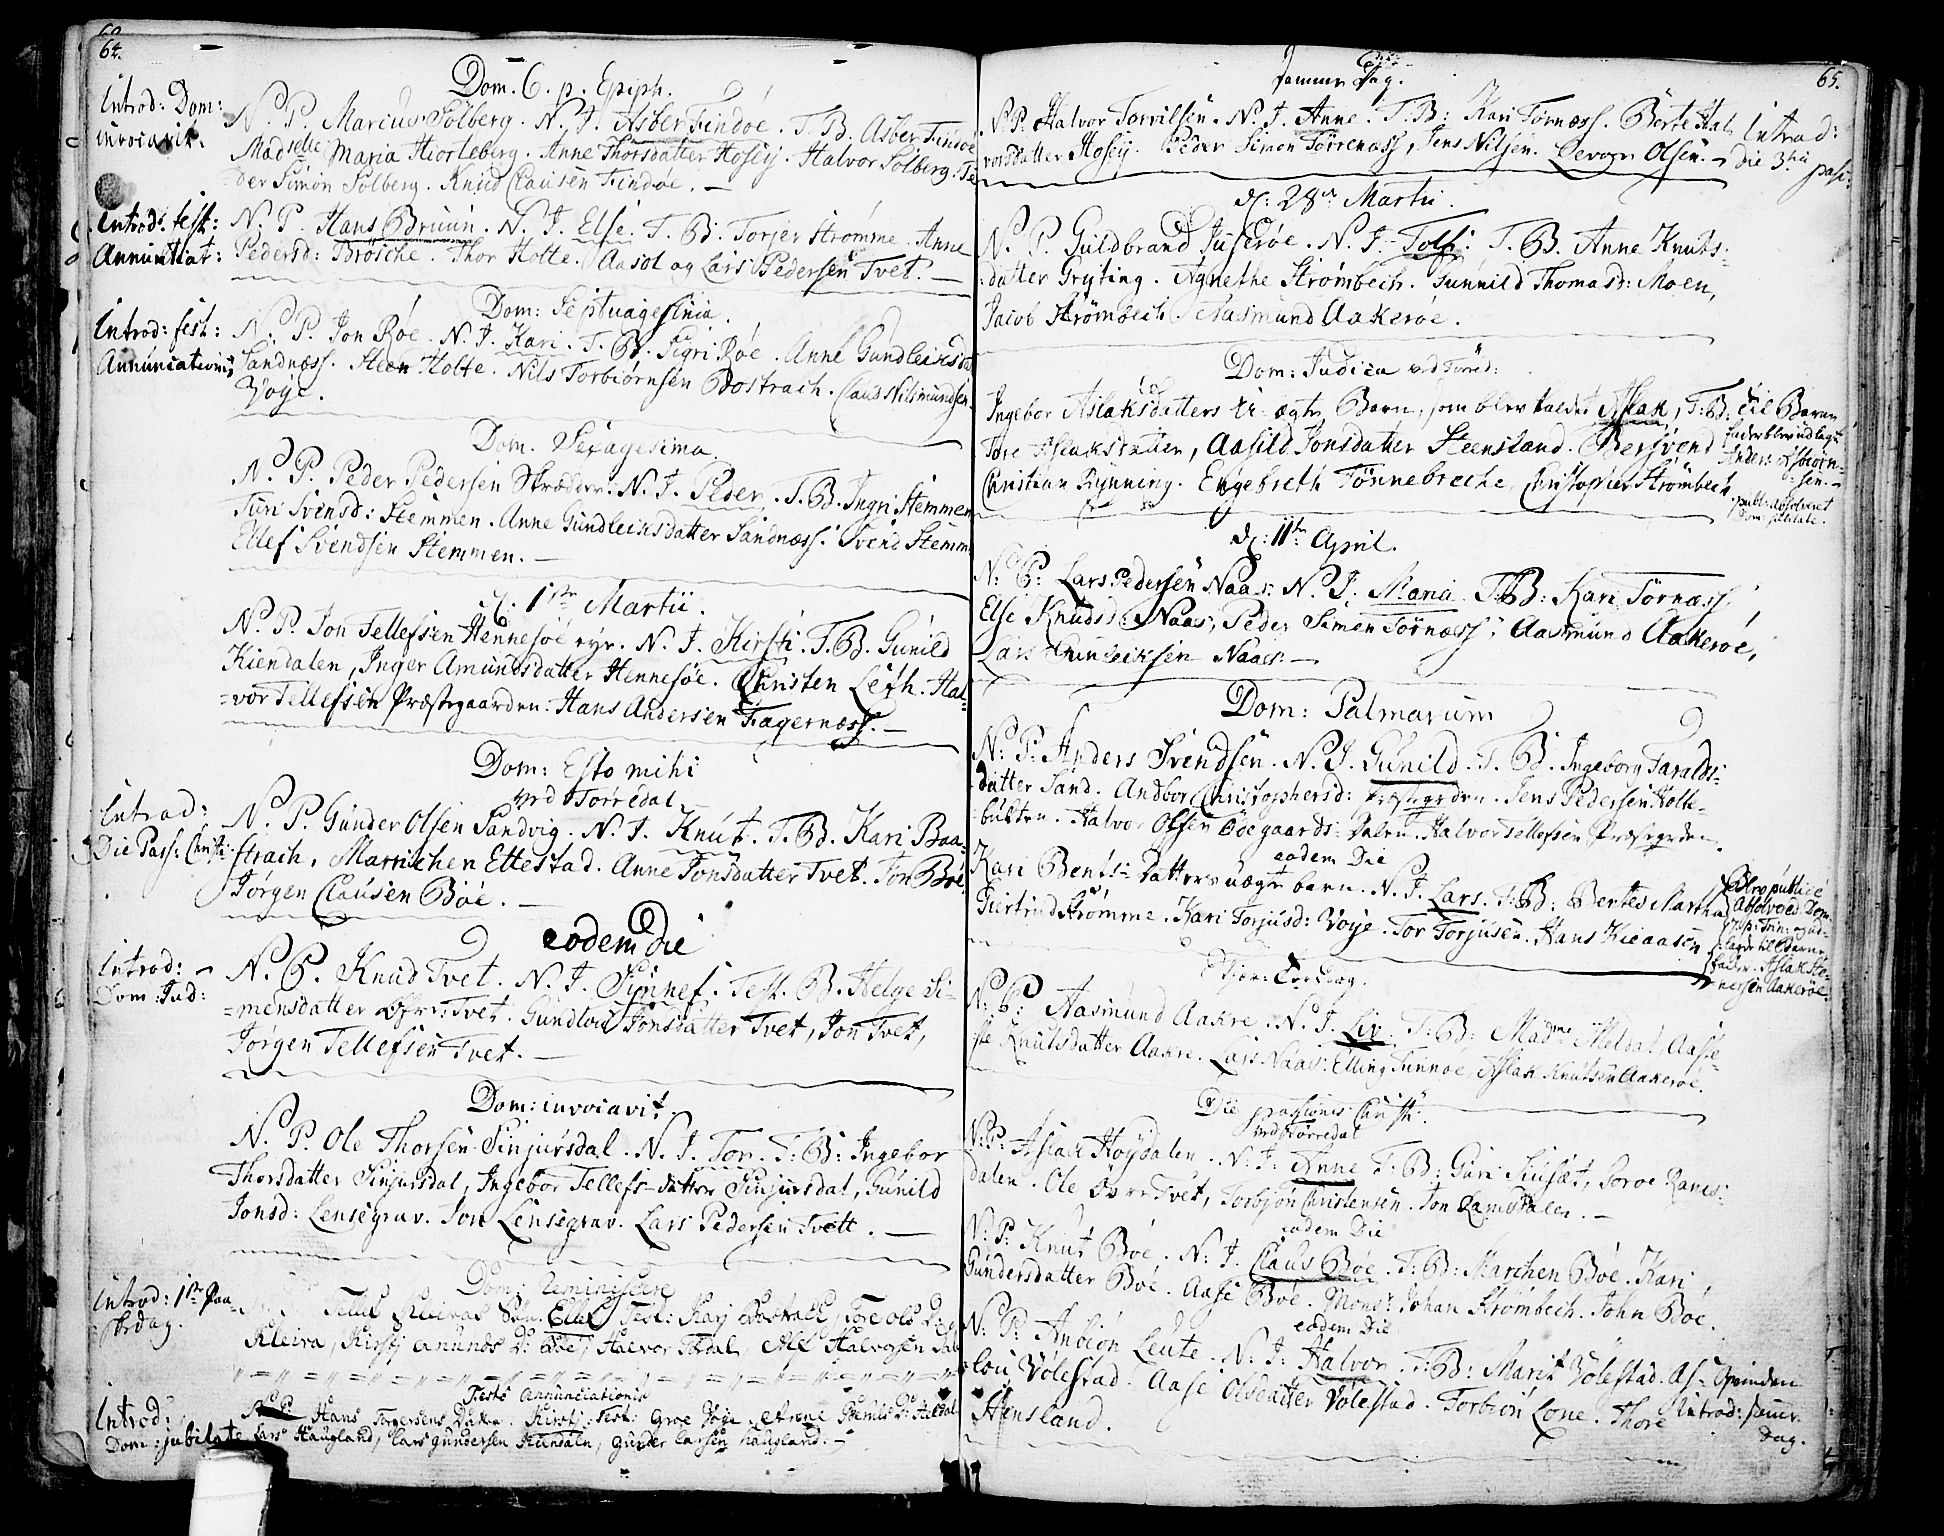 64.
Dom. 6. p. Epiph.
Introd: Dom:
invocavit.
N. P. Marcus Solberg. N. I. Asber Findöe. T. B. Asber Findöe
Madselle Maria Hiorteberg. Anne Thorsdatter Hosey. Halvor Solberg. Pe
der Simon Solberg. Knud Clausen Findöe. —
Introd: fest:
Annuntiat:
N. P. Hans Bruun. N. I. Else. T. B. Torjer Strömme. Anne
Pedersd: Brösche. Thor Holte. Aasol og Lars Pedersen Tvet. —
Dom: Septuagesima.
Introd: fest:
Annunciationis
N. P. Jon Röe. N. I. Kari. T. B. Sigri Röe. Anne Gundleiksdat
Sandnæss. Steen Holte. Nils Torbiörnsen Bostrach. Claus Nilsmundsen
Voje.
Dom. Sexagesima.
N. P. Peder Pedersen Skrædder. N. I. Peder. T. B. Ingri Stemmen
Turi Svensd: Stemmen. Anne Gundleiksdatter Sandnæss. Svend Stemm
Ellef Svendsen Stemmen. —
d: 1ste Martii.
N. P. Jon Tellefsen Hennesöe eyr. N. I. Kirsti. T. B. Gunild
Kiendalen, Inger Amundsdatter Hennesöe. Christen Leth. Hal-
=vor Tellefsen Præstegaarden. Hans Andersen Fragernæss. —
Dom: Esto mihi
ved Torredal
Introd:
Die Pass: Christi
N. P. Gunder Olsen Sandvig. N. I. Knut. T. B. Kari Baa-
strach, Marrichen Ettestad. Anne Jonsdatter Tvet. Jon Böe
Jörgen Clausen Böe. —
eodem Die
Introd: —
Dom: Jud:
N. P. Knud Tvet. N. I. Sünnef. Test. B. Helge Si-
=mensdatter öfre Tvet. Gundlou Jonsdatter Tvet, Jon Tvet,
Jörgen Tellefsen Tvet. —
Dom: invocavit.
N. P. Ole Thorsen Sinjursdal. N. I. Tor. T: B: Ingebor
Thorsdatter Sinjursdal, Ingebor Tellefs-datter Sinjursdal, Gunild
Jonsd: Lensegrav. Jon Lensegrav. Lars Pedersen Tvett. —
Dom: Reminiscere
Introd: 1ste Paa-
skedag.
Kleivas Søn Ellef Test: Karj Bostrach, Tore Ols D:
Kleiva, Kirstj Amunds D: Böe, Halvor Tördal, Halvorsen
Festo Annunciationis
Introd:
Dom: jubilate
N. P. Hans Torgersens Datter. Kirstj. Test: Groe Voje,
Lars Haugland, Lars Gundersen Kiendaln, Gunder Larsen Haugland. —
65.
Samme Dag.
N. P. Halvor Torrilsen. N. I. Anne. T. B: Kari Törnæss. Berte Hal-
vorsdatter Hosey. Peder Simon Törrenæss, Jens Nilsen. Sevor Olsen. —
Introd:
die 3tiu pasc:
d: 28de Martii.
N. P. Guldbrand Juseröe. N. I. Tolf. T. B. Anne Knuts-
:datter Gryting. Agnethe Strömbech. Gunnild Thomasd: Moen,
Jacob Strömbech. Aasmund Aakeröe.
Dom: Judica ved Törred:
Ingebor Aslaksdatters uægte Barn, som blev kaldet Aslak, T: B:
Tore Aslaksdatter, Aasild Jonsdatter Steensland. Bersvend
Christian Rynning. Engebreth Tönnebreche, Christopher Strömbech
Til Barne
fader blev udlagt
Anders Asbiörn-
sen. —
publ: absolveret
Dom: jubilate.
d: 11te April.
N: P: Lars Pedersen Naas: N. I. Maria. T. B: Kari Törnæss,
Else Knudsd: Naas, Peder Simen Törnæss, Aasmund Aakeröe,
Lars Gunleiksen Naas. —
Dom: Palmarum
N: P: Anders Svendsen. N. I. Gunild. T. B. Ingeborg Taralds-
datter Sand. Andbor Christophersd: Præstegrden. Jens Pedersen Holle-
=bukten. Halvor Olsen Ödegaards: Dalen. Halvor Tellefsen Præstegrden.
eodem Die
Kari Bents-Datters uægte barn. N. I. Lars. T: B: Bertes Martha
Giertrud Strömme. Kari Torjusd: Voje. Tor Torjusen. Hans Kieaasen
Blev publice
absolvered Dom.
7. p: Trin: og ud-
lagde til Barne
fader. Aslak Ste-
nersen Aakeröe.
Skjær-Torsdag.
N: P: Aasmund Aakre. N. I. Liv. T: B: Madme Meldal, Aasle
Knutsdatter Aakre. Lars Naas: Elling Sunnöe, Aslak Knutsen Aakeröe.
Die passionis Christi:
ved Törredal
N: P: Aslak Höydalen. N: I: Anne T. B: Guri Siusæt, Soroe Rames-
dalen. Ole Övre Tvet, Torbjön Christensen. Jon Ramsdalen. —
eodem Die
N: P: Knut Böe. N: I. Claus Böe. T: B: Marchen Böe. Kari
Gundersdatter Böe. Aase Böe. Monsr: Johan Strömbech. John Böe.
eodem Die
N: P: Anbiön Leute. N: I: Halvor. T: B: Marit Völestad. As-
lou Völestad. Aase Olsdatter Völestad. Torbiön Lone. Thore
Hensland.
Qvinden
Introd: samme
Dag.